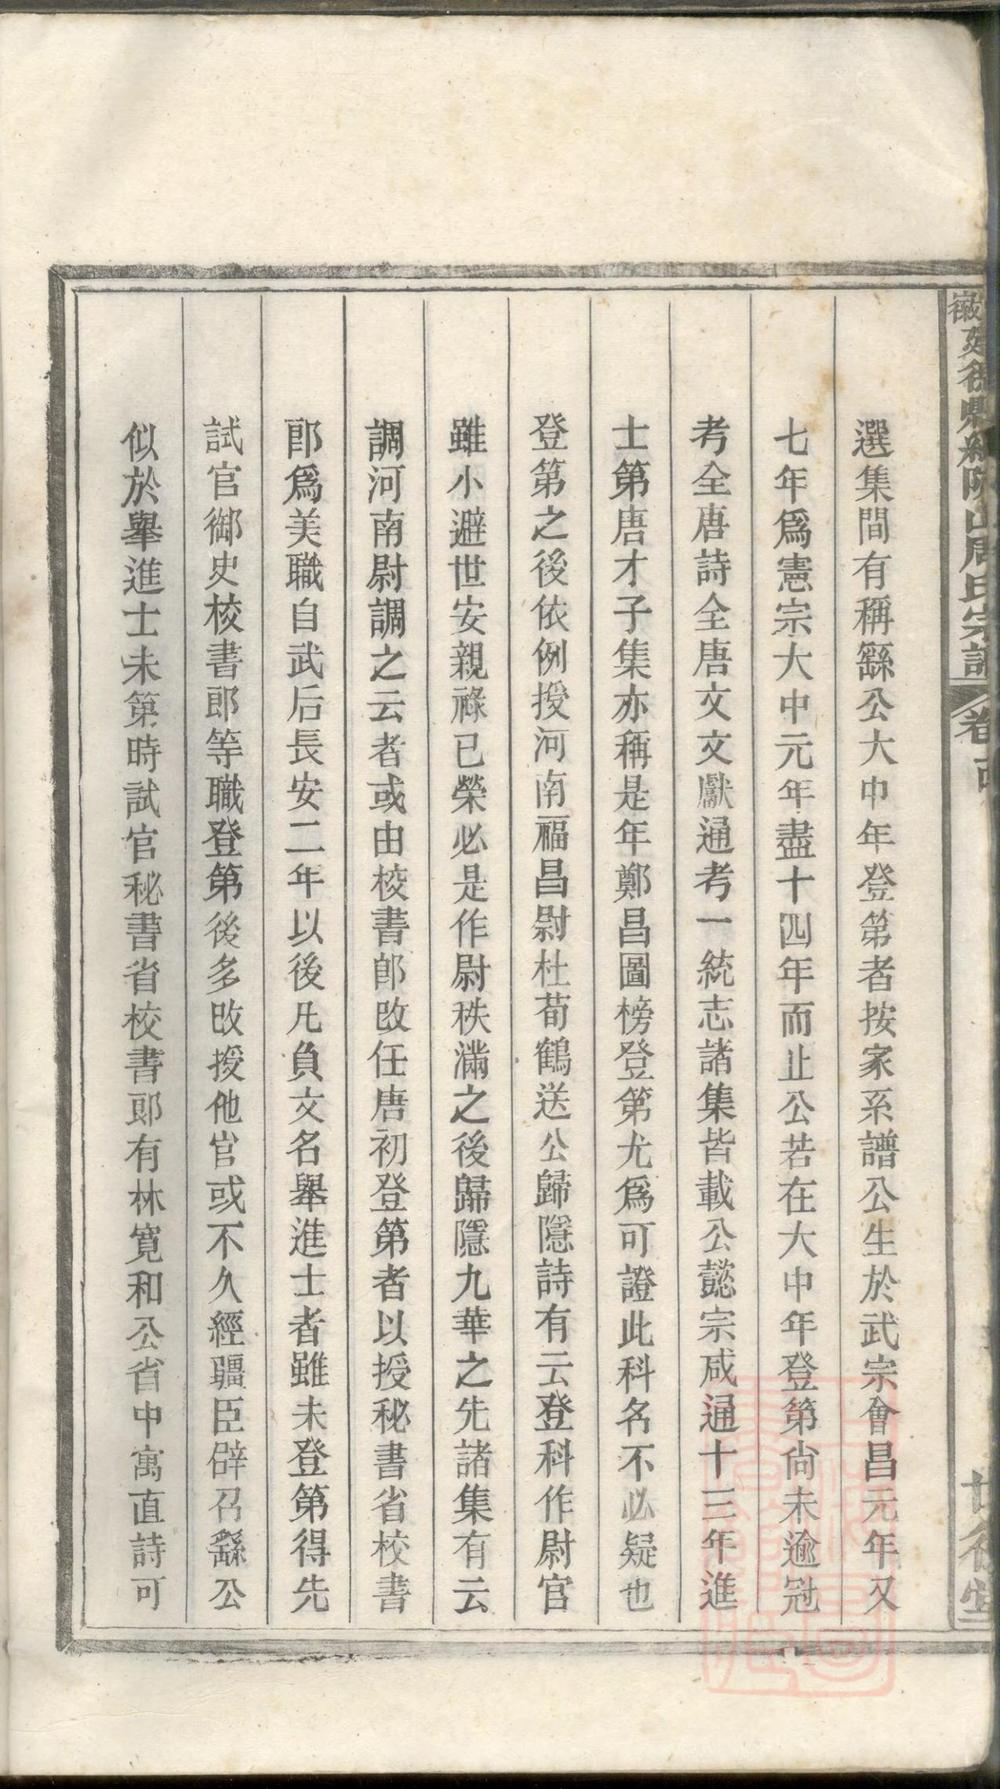 選集間有稱繇公大中年登第者按家系譜公生於武宗會昌元年又
七年爲憲宗大中元年盡十四年而止公若在大中年登第尙未逾冠
考全唐詩全唐文文獻通考一統志諸集皆載公懿宗咸通十三年進
士第唐才子集亦稱是年鄭昌圖榜登第尤爲可證此科名不必疑也
登第之後依例授河南福昌尉杜荀鶴送公歸隱詩有云登科作尉官
雖小避世安親祿已榮必是作尉秩滿之後歸隱九華之先諸集有云
調河南尉調之云者或由校書郎改任唐初登第者以授秘書省校書
郎爲美職自武后長安二年以後凡負文名舉進士者雖未登第得先
試官御史校書郎等職登第後多改授他官或不久經疆臣辟召繇公
似於舉進士未第時試官秘書省校書郎有林寬和公省中寓直詩可
山周氏宗譜